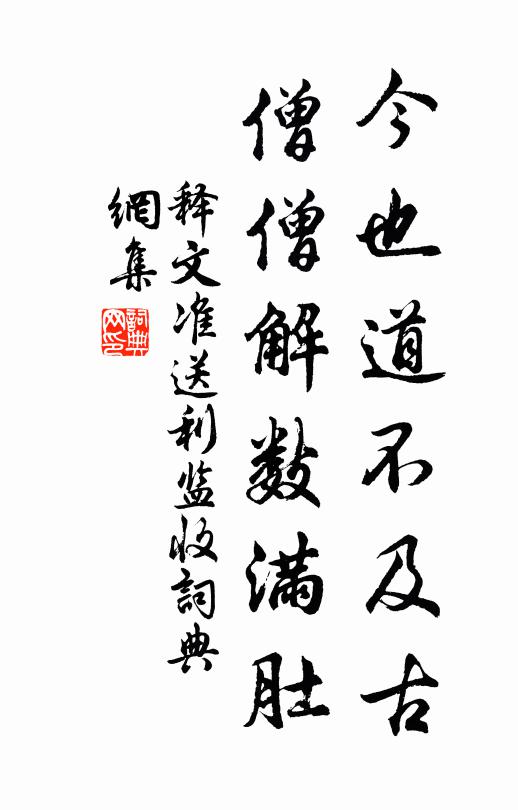 今也道不及古
僧僧解数满肚
释文准送利监收詞典
網集
詞典
网印